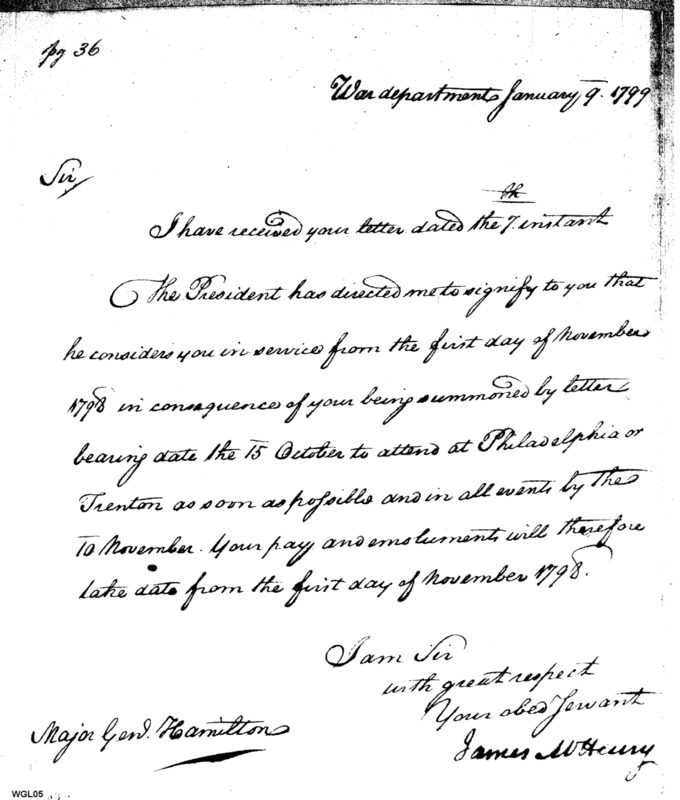 pg 36
War department January 9. 1799
Sir
th
I have received your letter dated the 7. instant
The President has directed me to signify to you that
he considers you in service from the first day of November
1798 in consequence of your being summoned by letter
bearing date the 15 October to attend at Philadelphia or
Trenton as soon as possible and in all events by the
10 November. Your pay and emoluments will therefore
take date from the first day of November 1798.
I am Sir
with great respect
Your obed Servant
James McHenry
Major Genl. Hamilton
WGL05